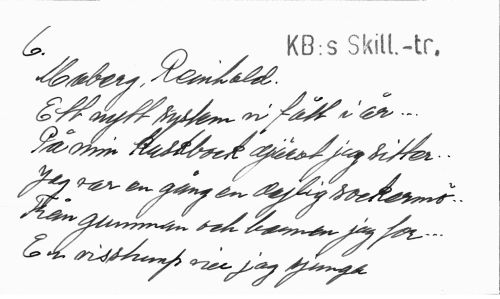 6.
KB:s Skill.-tr.
Moberg, Reinhold.
Ett nytt system vi fått i år...
På min kuskbock djärvt jag sitter...
Jag var en gång en dejlig sockermö...
Från gumman och barnen jag for...
En visstump vill jag sjunga